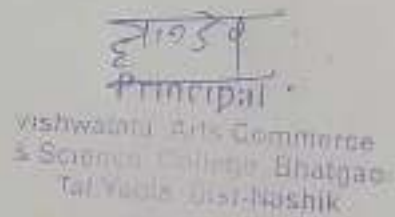 Principal
vishwalata Arts Commerce
& Science College Bhatgao
Tal.Yeola Dist-Nashik